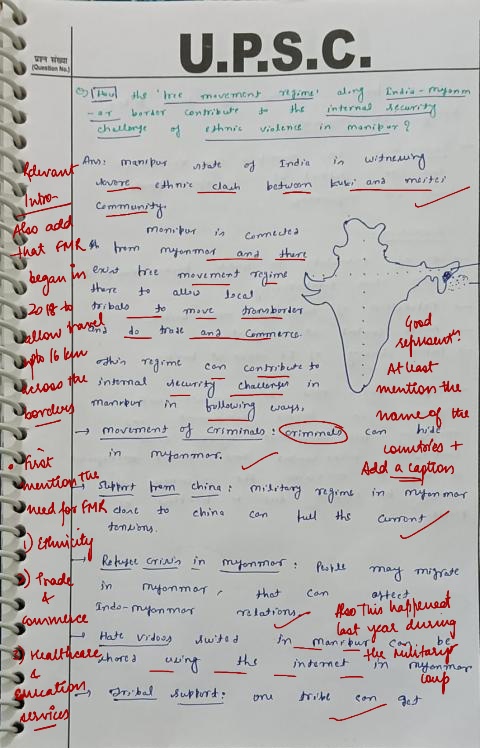 प्रश्न संख्या
(Question No.)
U.P.S.C.
Q) How the 'free movement regime' along India-myanm
-ar border contribute to the internal security
challenge of ethnic violence in manipur?
Ans: manipur state of India is witnessing
severe ethnic clash between kuki and meitei
community.
manipur is connected
from myanmar and there
exist free movement regime
there to allow local
tribals to move transborder
and do trade and commerce.
This regime can contribute to
internal security challenges in
manipur in following ways.
→ movement of criminals: criminals can hide
in myanmar.
→ Support from china: military regime in myanmar
close to china can full the current
tensions.
→ Refugee crisis in myanmar: People may migrate
in myanmar, that can affect
Indo-myanmar relations.
→ Hate videos suited in manipur can be
shared using the internet in myanmar
→ Tribal support: one tribe can get
Relevant
Intro-
Also add
that FMR
began in
2018 to
allow travel
upto 16 km
across the
borders
• First
mention the
need for FMR
1) Ethnicity
2) Trade
&
commerce
3) Healthcare
&
education
services
Good
represent^n.
At least
mention the
name of the
countries +
Add a caption
Also This happened
last year during
the military
coup